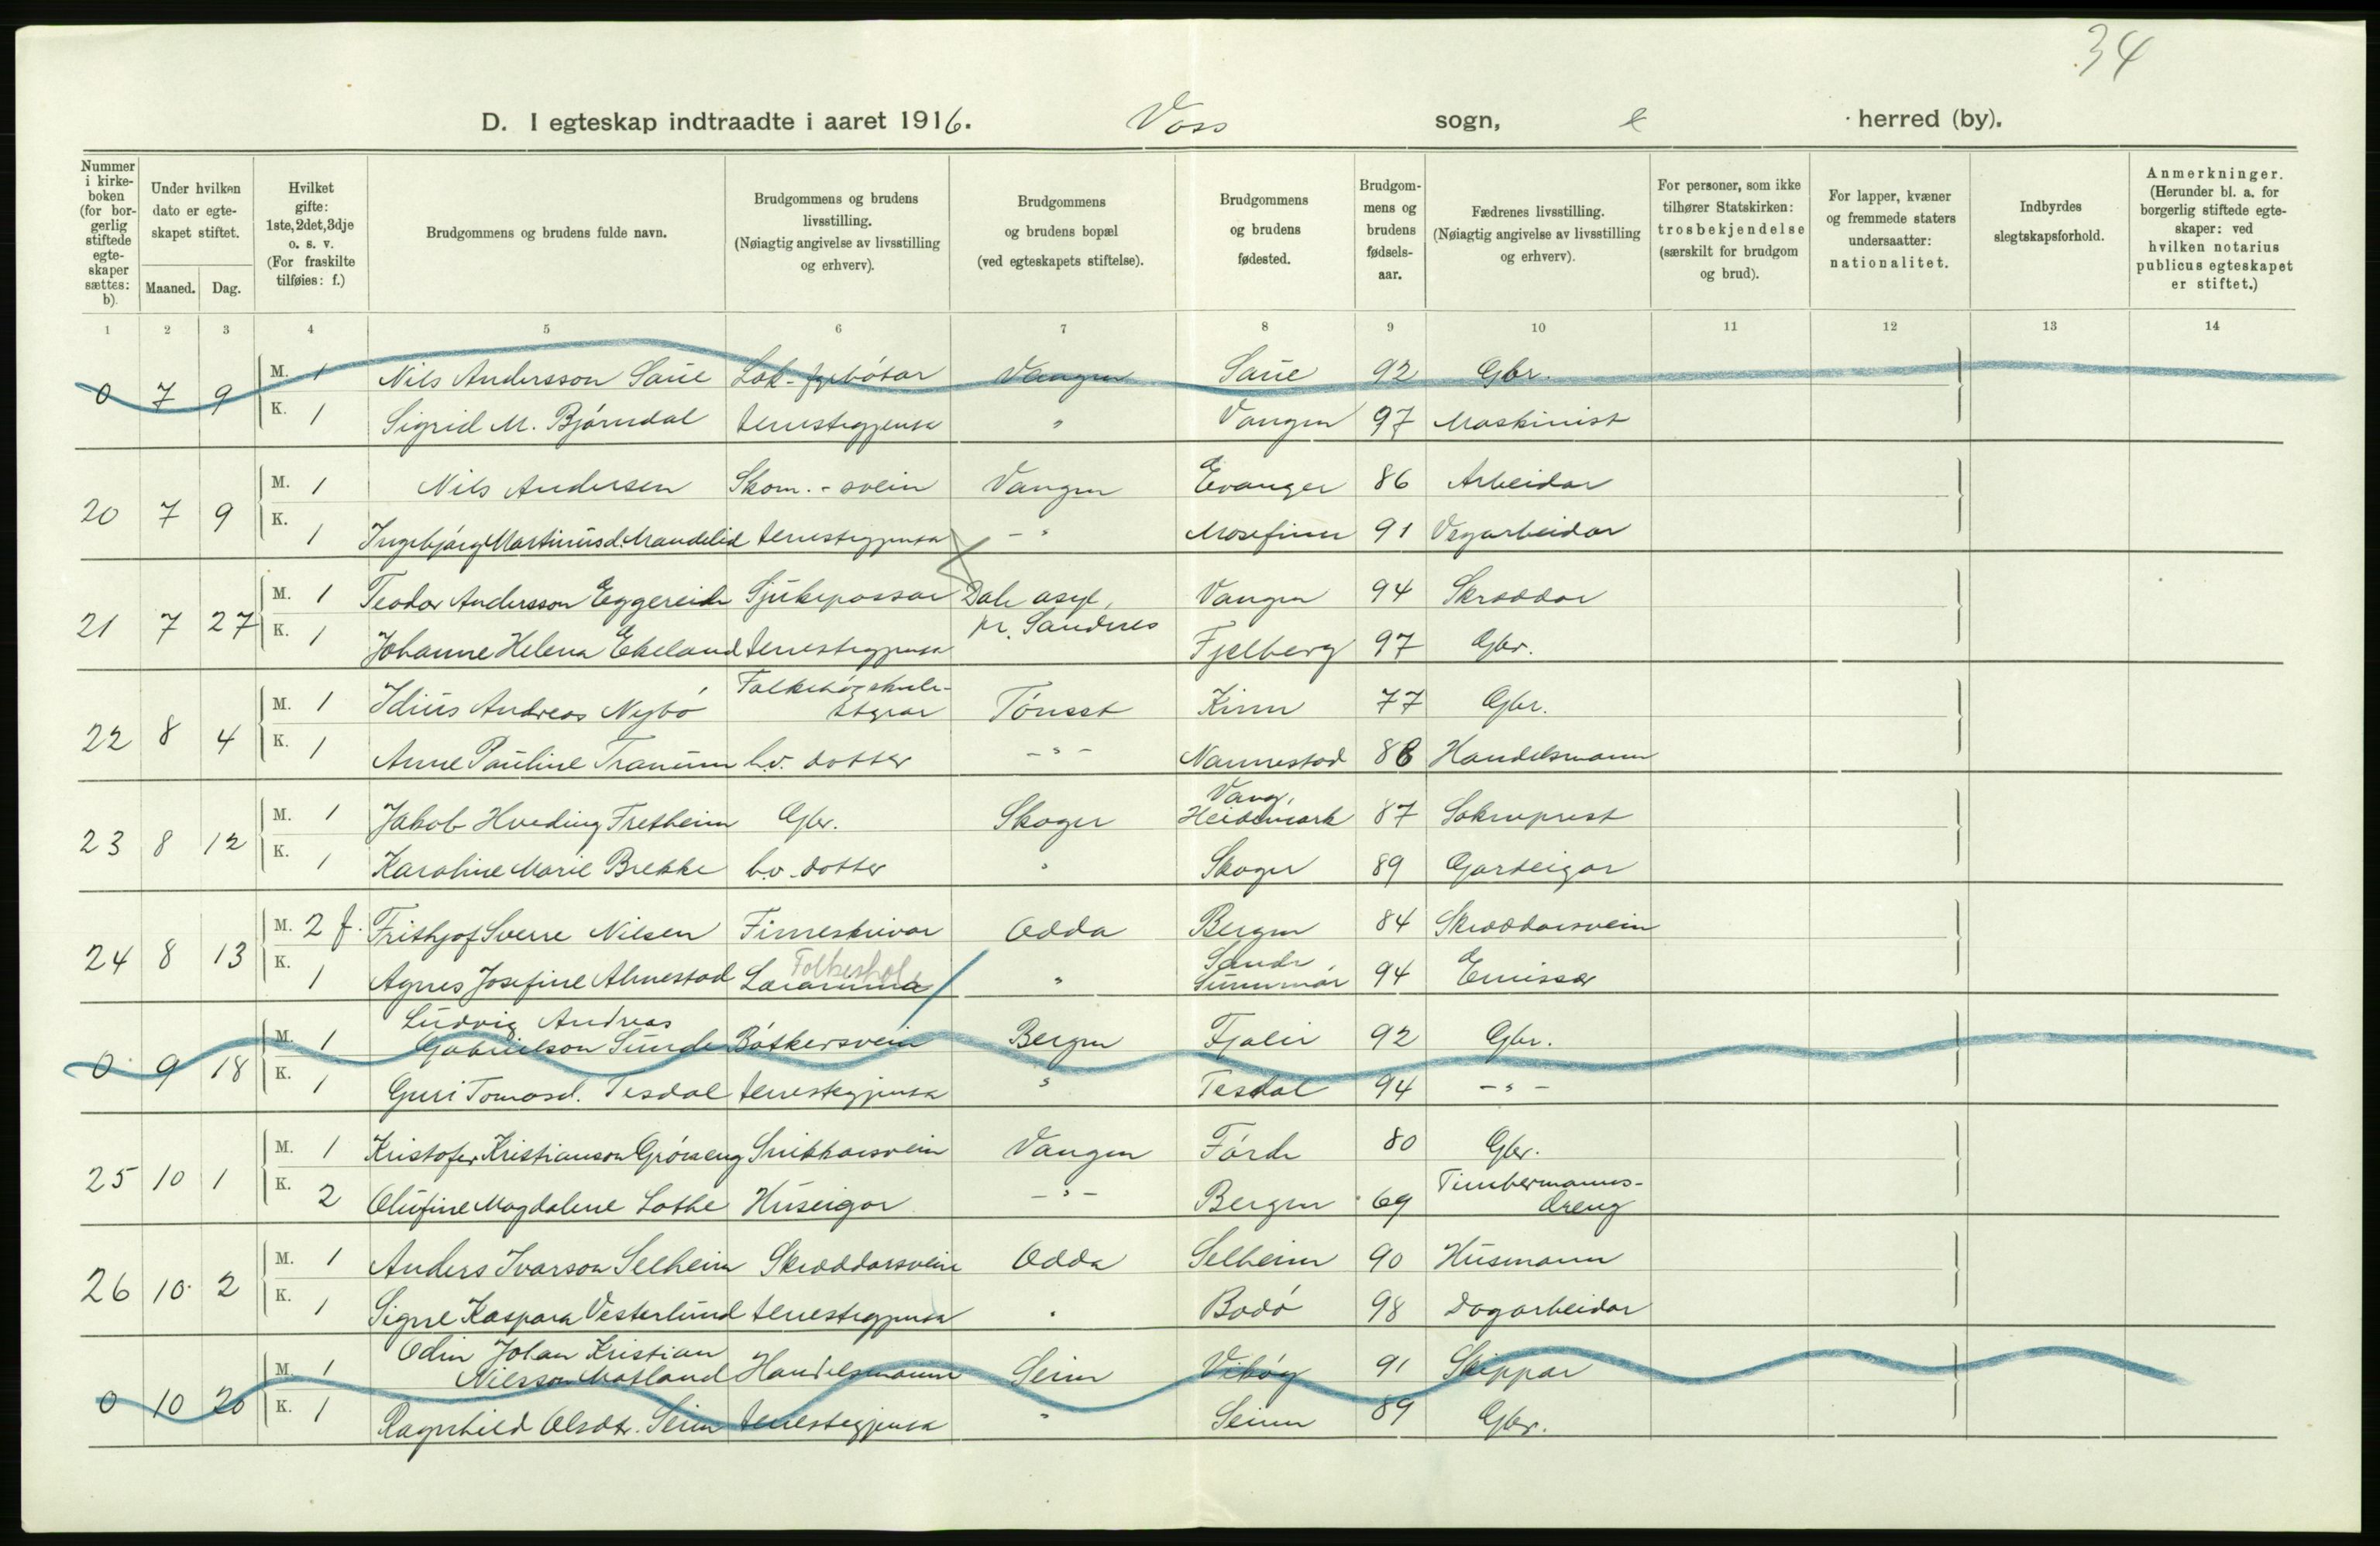 34
D. I egteskap indtraadte i aaret 1916. Voss sogn, herred (by).
Nummer i kirkeboken (for borgerlig stiftede egteskaper sættes: b).
Under hvilken dato er egteskapet stiftet.
Maaned. Dag.
Hvilket gifte: 1ste, 2det, 3dje o. s. v. (For fraskilte tilføies: f.)
Brudgommens og brudens fulde navn.
Brudgommens og brudens livsstilling. (Nøiagtig angivelse av livsstilling og erhverv).
Brudgommens og brudens bopæl (ved egteskapets stiftelse).
Brudgommens og brudens fødested.
Brudgommens og brudens fødselsaar.
Fædrenes livsstilling. (Nøiagtig angivelse av livsstilling og erhverv).
For personer, som ikke tilhører Statskirken: trosbekjendelse (særskilt for brudgom og brud).
For lapper, kvæner og fremmede staters undersaatter: nationalitet.
Indbyrdes slegtskapsforhold.
Anmerkninger. (Herunder bl. a. for borgerlig stiftede egteskaper: ved hvilken notarius publicus egteskapet er stiftet.)
1 2 3 4 5 6 7 8 9 10 11 12 13 14
0 7 9 M. 1 Nils Andersson Saue Lok-fyrbótar Vangen Saue 92 Gbr.
K. 1 Sigrid M. Bjórndal tenestegjenta " Vangen 97 Maskinist
20 7 9 M. 1 Nils Andersen Skom.-svein Vangen Evanger 86 Arbeidar
K. 1 Ingebjórg Martinusd. Mandelid tenestegjenta -"- Mosefinn 91 Vegarbeidar
21 7 27 M. 1 Teodor Andersson Eggereide Sjukepassar Dale asyl, Vangen 94 Skræddar
pr. Sandnes
K. 1 Johanne Helena Ekeland tenestegjenta Fjelberg 97 Gbr.
22 8 4 M. 1 Idius Andreas Nybó Folkehógskule- styrar Tónset Kinn 77 Gbr.
K. 1 Anne Pauline Tranum h.v. dotter -"- Nannestad 88 Handelsmann
23 8 12 M. 1 Jakob Hveding Fretheim Gbr. Skoger Vang, Heidemark 87 Sokneprest
K. 1 Karoline Marie Brekke h.v. dotter " Skoger 89 Gardeigar
24 8 13 M. 2 f. Frithjof Sverre Nilsen Finneskrivar Odda Bergen 84 Skræddarsvein
K. 1 Agnes Josefine Almestad Folkeskole Lærarinna " Sande, Sunnmór 94 Emissær
0 9 18 M. 1 Ludvig Andreas
Gabrielson Sunde Bótkersvein Bergen Fjaler 92 Gbr.
K. 1 Guri Tomasd. Tesdal tenestegjenta " Tesdal 94 -"-
25 10 1 M. 1 Kristofer Kristianson Gróneng Snikkarsvein Vangen Fórde 80 Gbr.
K. 2 Olufine Magdalene Lothe Huseigar -"- Bergen 69 Timbermanns- dreng
26 10 2 M. 1 Anders Ivarson Selheim Skræddarsvein Odda Selheim 90 Husmann
K. 1 Signe Kaspara Vesterlund tenestegjenta " Bodó 98 Dagarbeidar
0 10 20 M. 1 Odin Johan Kristian
Nilsson Matland Handelsmann Seim Vibóy 91 Skippar
K. 1 Ragnhild Olsdtr. Seim tenestegjenta " Seim 89 Gbr.